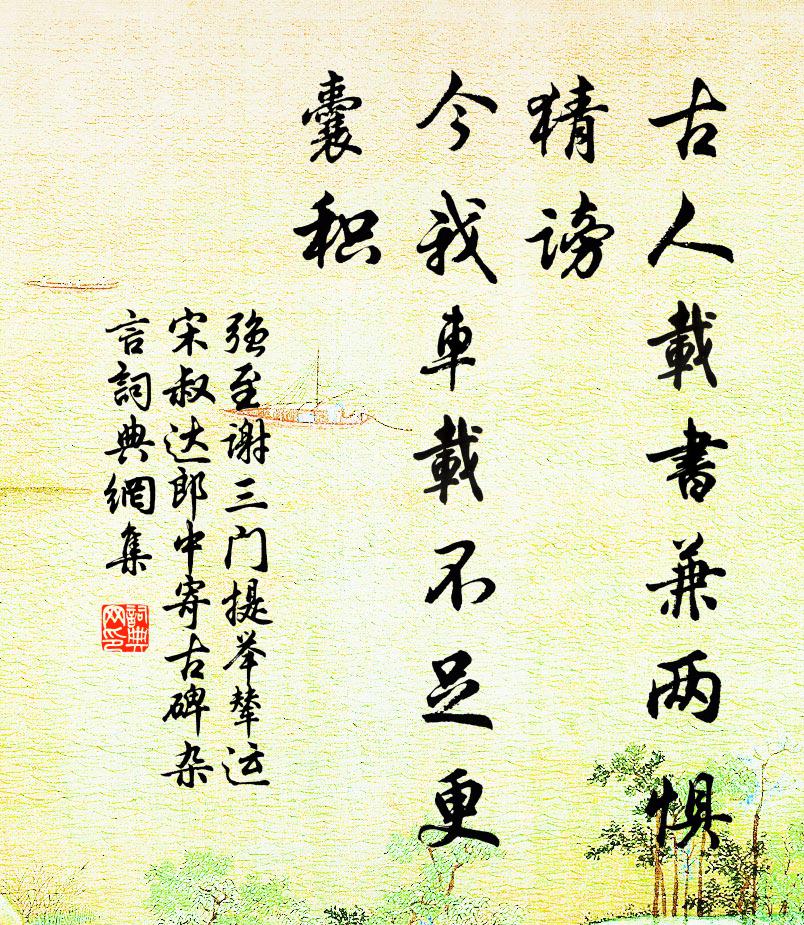 古人載書兼两惧
猜謗
今我車載不足更
囊积
强至谢三门提举辇运
宋叔达郎中寄古碑杂
言詞典網集
詞典网印